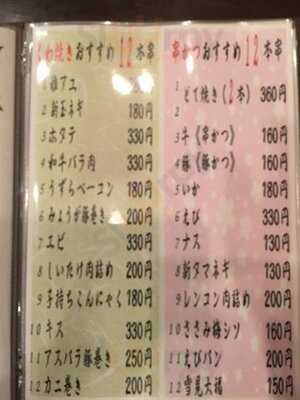 くわ焼きおすすめ12本串
1 稚アユ 330円
2 新玉ネギ 180円
3 ホタテ 330円
4 和牛バラ肉 330円
5 うずらベーコン 180円
6 みょうが豚巻き 200円
7 エビ 330円
8 しいたけ肉詰め 200円
9 子持ちこんにゃく 180円
10 キス 330円
11 アスパラ豚巻き 250円
12 カニ巻き 200円
串かつおすすめ12本串
1
2 どて焼き(2本) 360円
3 牛《串かつ》 160円
4 豚《豚かつ》 160円
5 いか 180円
6 えび 330円
7 ナス 130円
8 新タマネギ 130円
9 レンコン肉詰め 200円
10 ささみ梅シソ 160円
11 えびパン 200円
12 雪見大福 150円